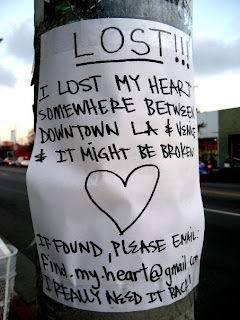 LOST!!!
I LOST MY HEART
SOMEWHERE BETWEEN
DOWNTOWN LA & VENICE
& IT MIGHT BE BROKEN
IF FOUND, PLEASE EMAIL:
find.my.heart@gmail.com
I REALLY NEED IT BACK!